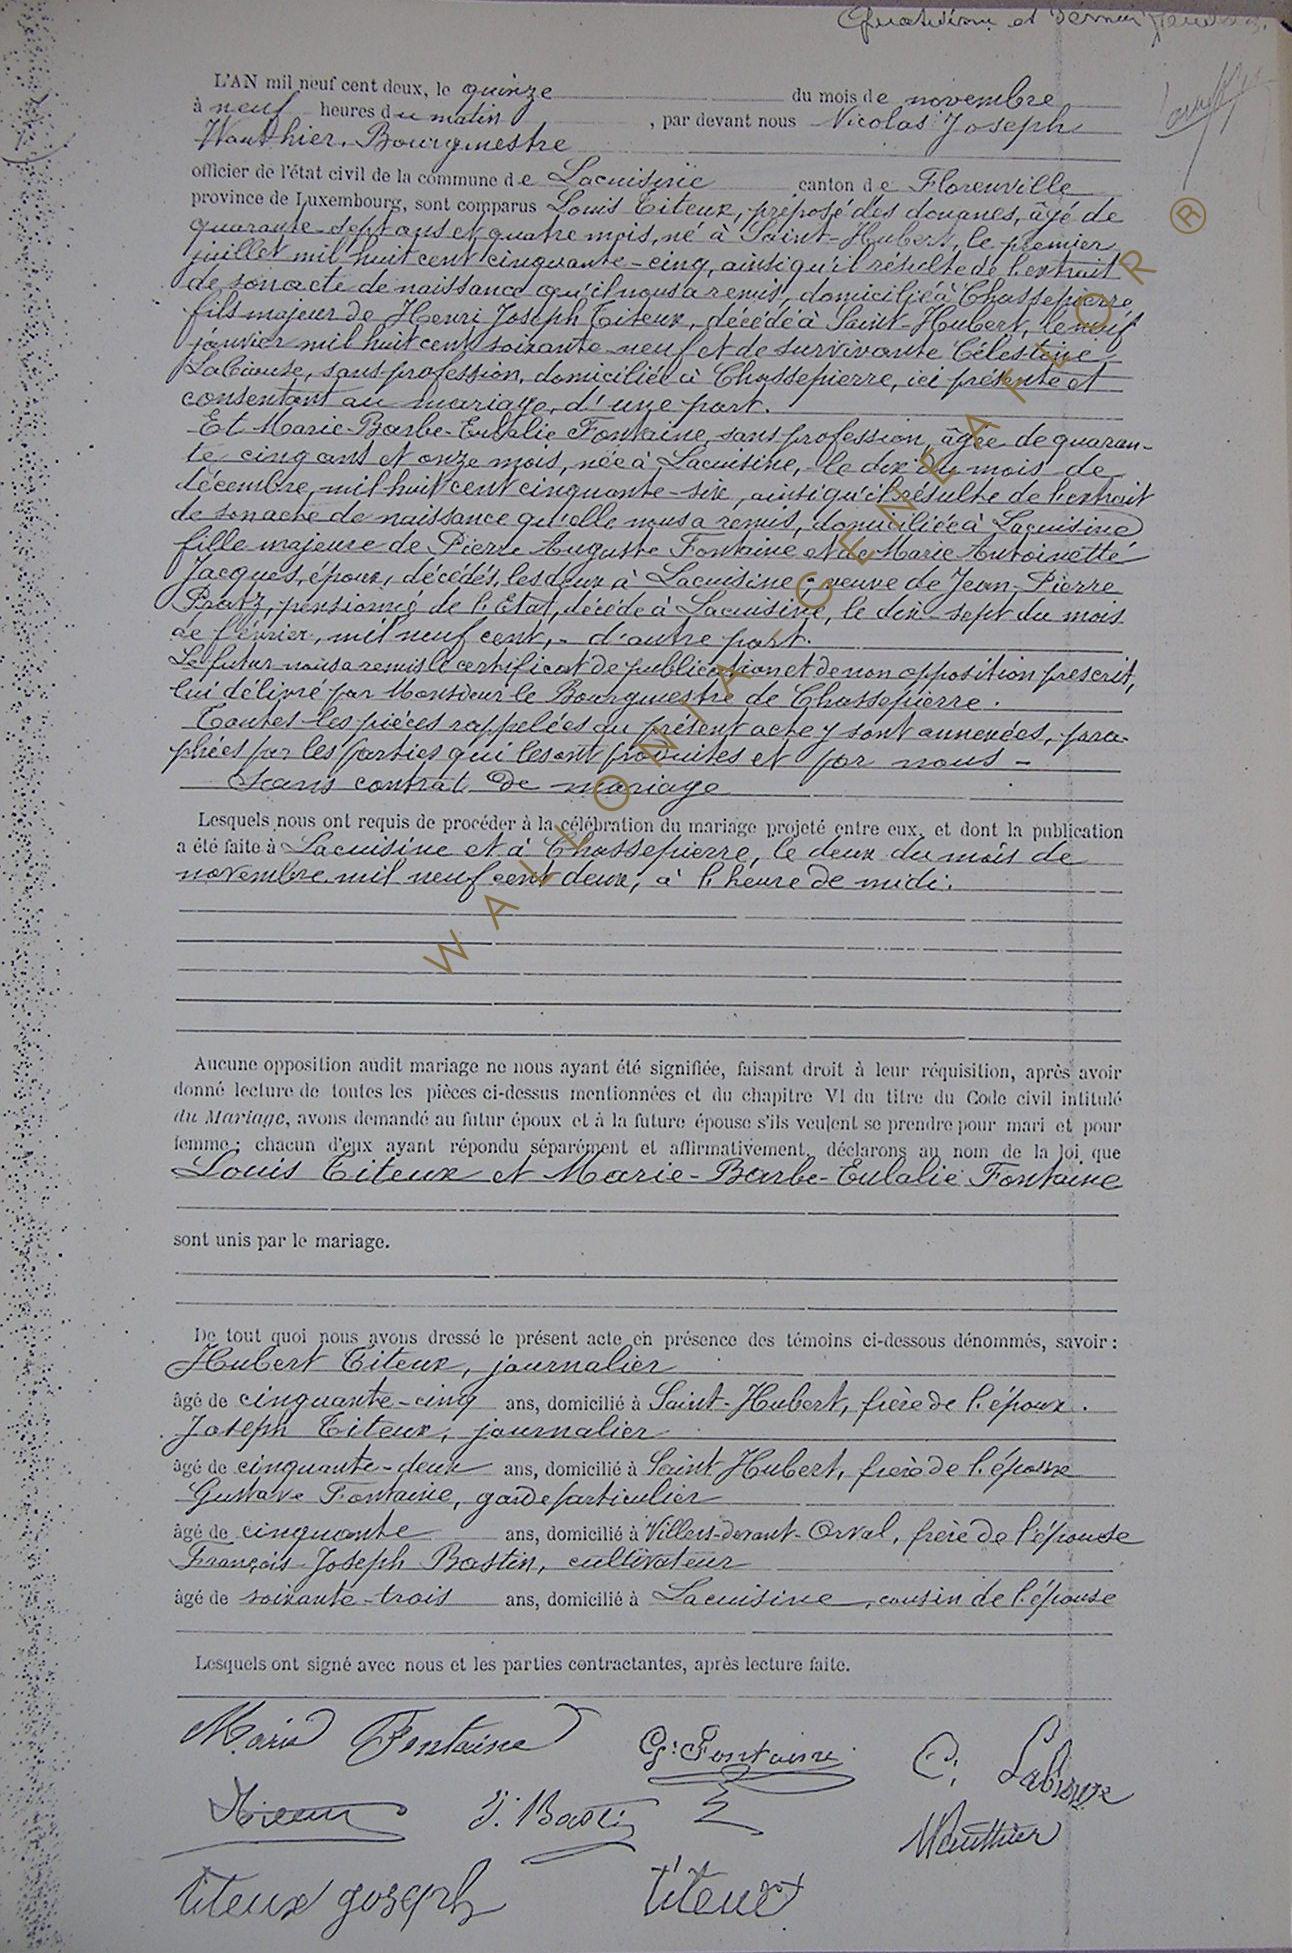 Quatrième et dernier feuillet.
L'AN mil neuf cent deux, le quinze du mois de novembre
à neuf heures du matin, par devant nous Nicolas Joseph
Wauthier, Bourgmestre
officier de l'état civil de la commune de Lacuisine canton de Florenville
province de Luxembourg, sont comparus Louis Titeux, préposé des douanes, âgé de
quarante-sept ans et quatre mois, né à Saint-Hubert, le premier
juillet mil huit cent cinquante-cinq, ainsi qu'il résulte de l'extrait
de son acte de naissance qu'il nous a remis, domicilié à Chassepierre,
fils majeur de Henri Joseph Titeux, décédé à Saint-Hubert, le neuf
janvier mil huit cent soixante-neuf et de survivante Célestine
Labiouse, sans profession, domiciliée à Chassepierre, ici présente et
consentant au mariage, d'une part.
Et Marie-Barbe-Eulalie Fontaine, sans profession, âgée de quaran-
te cinq ans et onze mois, née à Lacuisine, le dix du mois de
décembre, mil huit cent cinquante-six, ainsi qu'il résulte de l'extrait
de son acte de naissance qu'elle nous a remis, domiciliée à Lacuisine
fille majeure de Pierre Auguste Fontaine et de Marie Antoinette
Jacques, époux, décédés, les deux à Lacuisine ; veuve de Jean-Pierre
Pratz, pensionné de l'Etat, décédé à Lacuisine, le dix-sept du mois
de février, mil neuf cent, - d'autre part.
Le futur nous a remis le certificat de publication et de non opposition prescrit,
lui délivré par Monsieur le Bourgmestre de Chassepierre.
Toutes les pièces rappelées au présent acte y sont annexées, para-
phées par les parties qui les ont produites et par nous -
Sans contrat de mariage
Lesquels nous ont requis de procéder à la célébration du mariage projeté entre eux, et dont la publication
a été faite à Lacuisine et à Chassepierre, le deux du mois de
novembre mil neuf cent deux, à l'heure de midi.
Aucune opposition audit mariage ne nous ayant été signifiée, faisant droit à leur réquisition, après avoir
donné lecture de toutes les pièces ci-dessus mentionnées et du chapitre VI du titre du Code civil intitulé
du Mariage, avons demandé au futur époux et à la future épouse s'ils veulent se prendre pour mari et pour
femme ; chacun d'eux ayant répondu séparément et affirmativement, déclarons au nom de la loi que
Louis Titeux et Marie-Barbe-Eulalie Fontaine
sont unis par le mariage.
De tout quoi nous avons dressé le présent acte en présence des témoins ci-dessous dénommés, savoir :
Hubert Titeux, journalier
âgé de cinquante-cinq ans, domicilié à Saint-Hubert, frère de l'époux.
Joseph Titeux, journalier
âgé de cinquante-deux ans, domicilié à Saint Hubert, frère de l'époux
Gustave Fontaine, garde particulier
âgé de cinquante ans, domicilié à Villers-devant-Orval, frère de l'épouse
François-Joseph Bastin, cultivateur
âgé de soixante-trois ans, domicilié à Lacuisine, cousin de l'épouse
Lesquels ont signé avec nous et les parties contractantes, après lecture faite.
Marie Fontaine G. Fontaine C. Labiouse
Titeux J. Bastin Wauthier
titeux joseph titeux
WALLONIA-GENEAFLOR ®